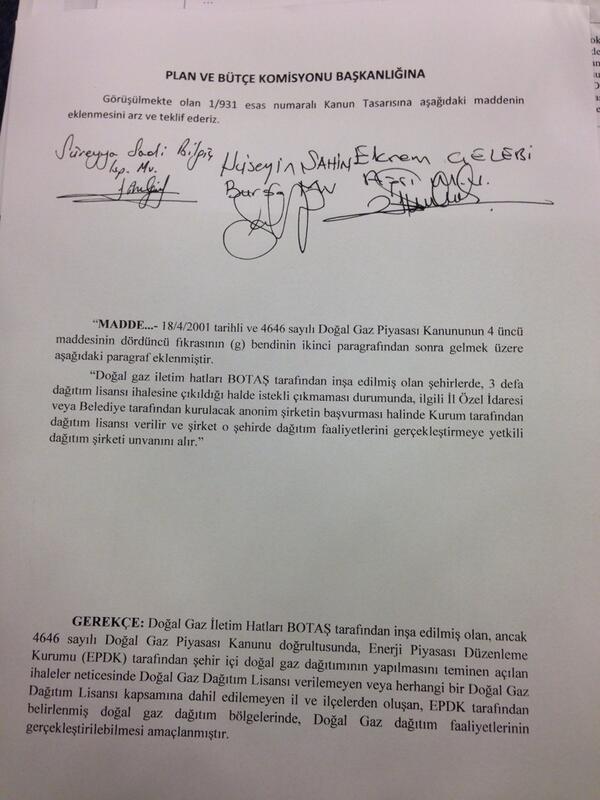 PLAN VE BÜTÇE KOMİSYONU BAŞKANLIĞINA
Görüşülmekte olan 1/931 esas numaralı Kanun Tasarısına aşağıdaki maddenin
eklenmesini arz ve teklif ederiz.
Süreyya Sadi Bilgiç Hüseyin ŞAHİN Ekrem ÇELEBİ
Isp. Mv. Bursa Mv Ağrı
“MADDE...- 18/4/2001 tarihli ve 4646 sayılı Doğal Gaz Piyasası Kanununun 4 üncü
maddesinin dördüncü fıkrasının (g) bendinin ikinci paragrafından sonra gelmek üzere
aşağıdaki paragraf eklenmiştir.
“Doğal gaz iletim hatları BOTAŞ tarafından inşa edilmiş olan şehirlerde, 3 defa
dağıtım lisansı ihalesine çıkıldığı halde istekli çıkmaması durumunda, ilgili İl Özel İdaresi
veya Belediye tarafından kurulacak anonim şirketin başvurması halinde Kurum tarafından
dağıtım lisansı verilir ve şirket o şehirde dağıtım faaliyetlerini gerçekleştirmeye yetkili
dağıtım şirketi unvanını alır.”
GEREKÇE: Doğal Gaz İletim Hatları BOTAŞ tarafından inşa edilmiş olan, ancak
4646 sayılı Doğal Gaz Piyasası Kanunu doğrultusunda, Enerji Piyasası Düzenleme
Kurumu (EPDK) tarafından şehir içi doğal gaz dağıtımının yapılmasını teminen açılan
ihaleler neticesinde Doğal Gaz Dağıtım Lisansı verilemeyen veya herhangi bir Doğal Gaz
Dağıtım Lisansı kapsamına dahil edilemeyen il ve ilçelerden oluşan, EPDK tarafından
belirlenmiş doğal gaz dağıtım bölgelerinde, Doğal Gaz dağıtım faaliyetlerinin
gerçekleştirilebilmesi amaçlanmıştır.